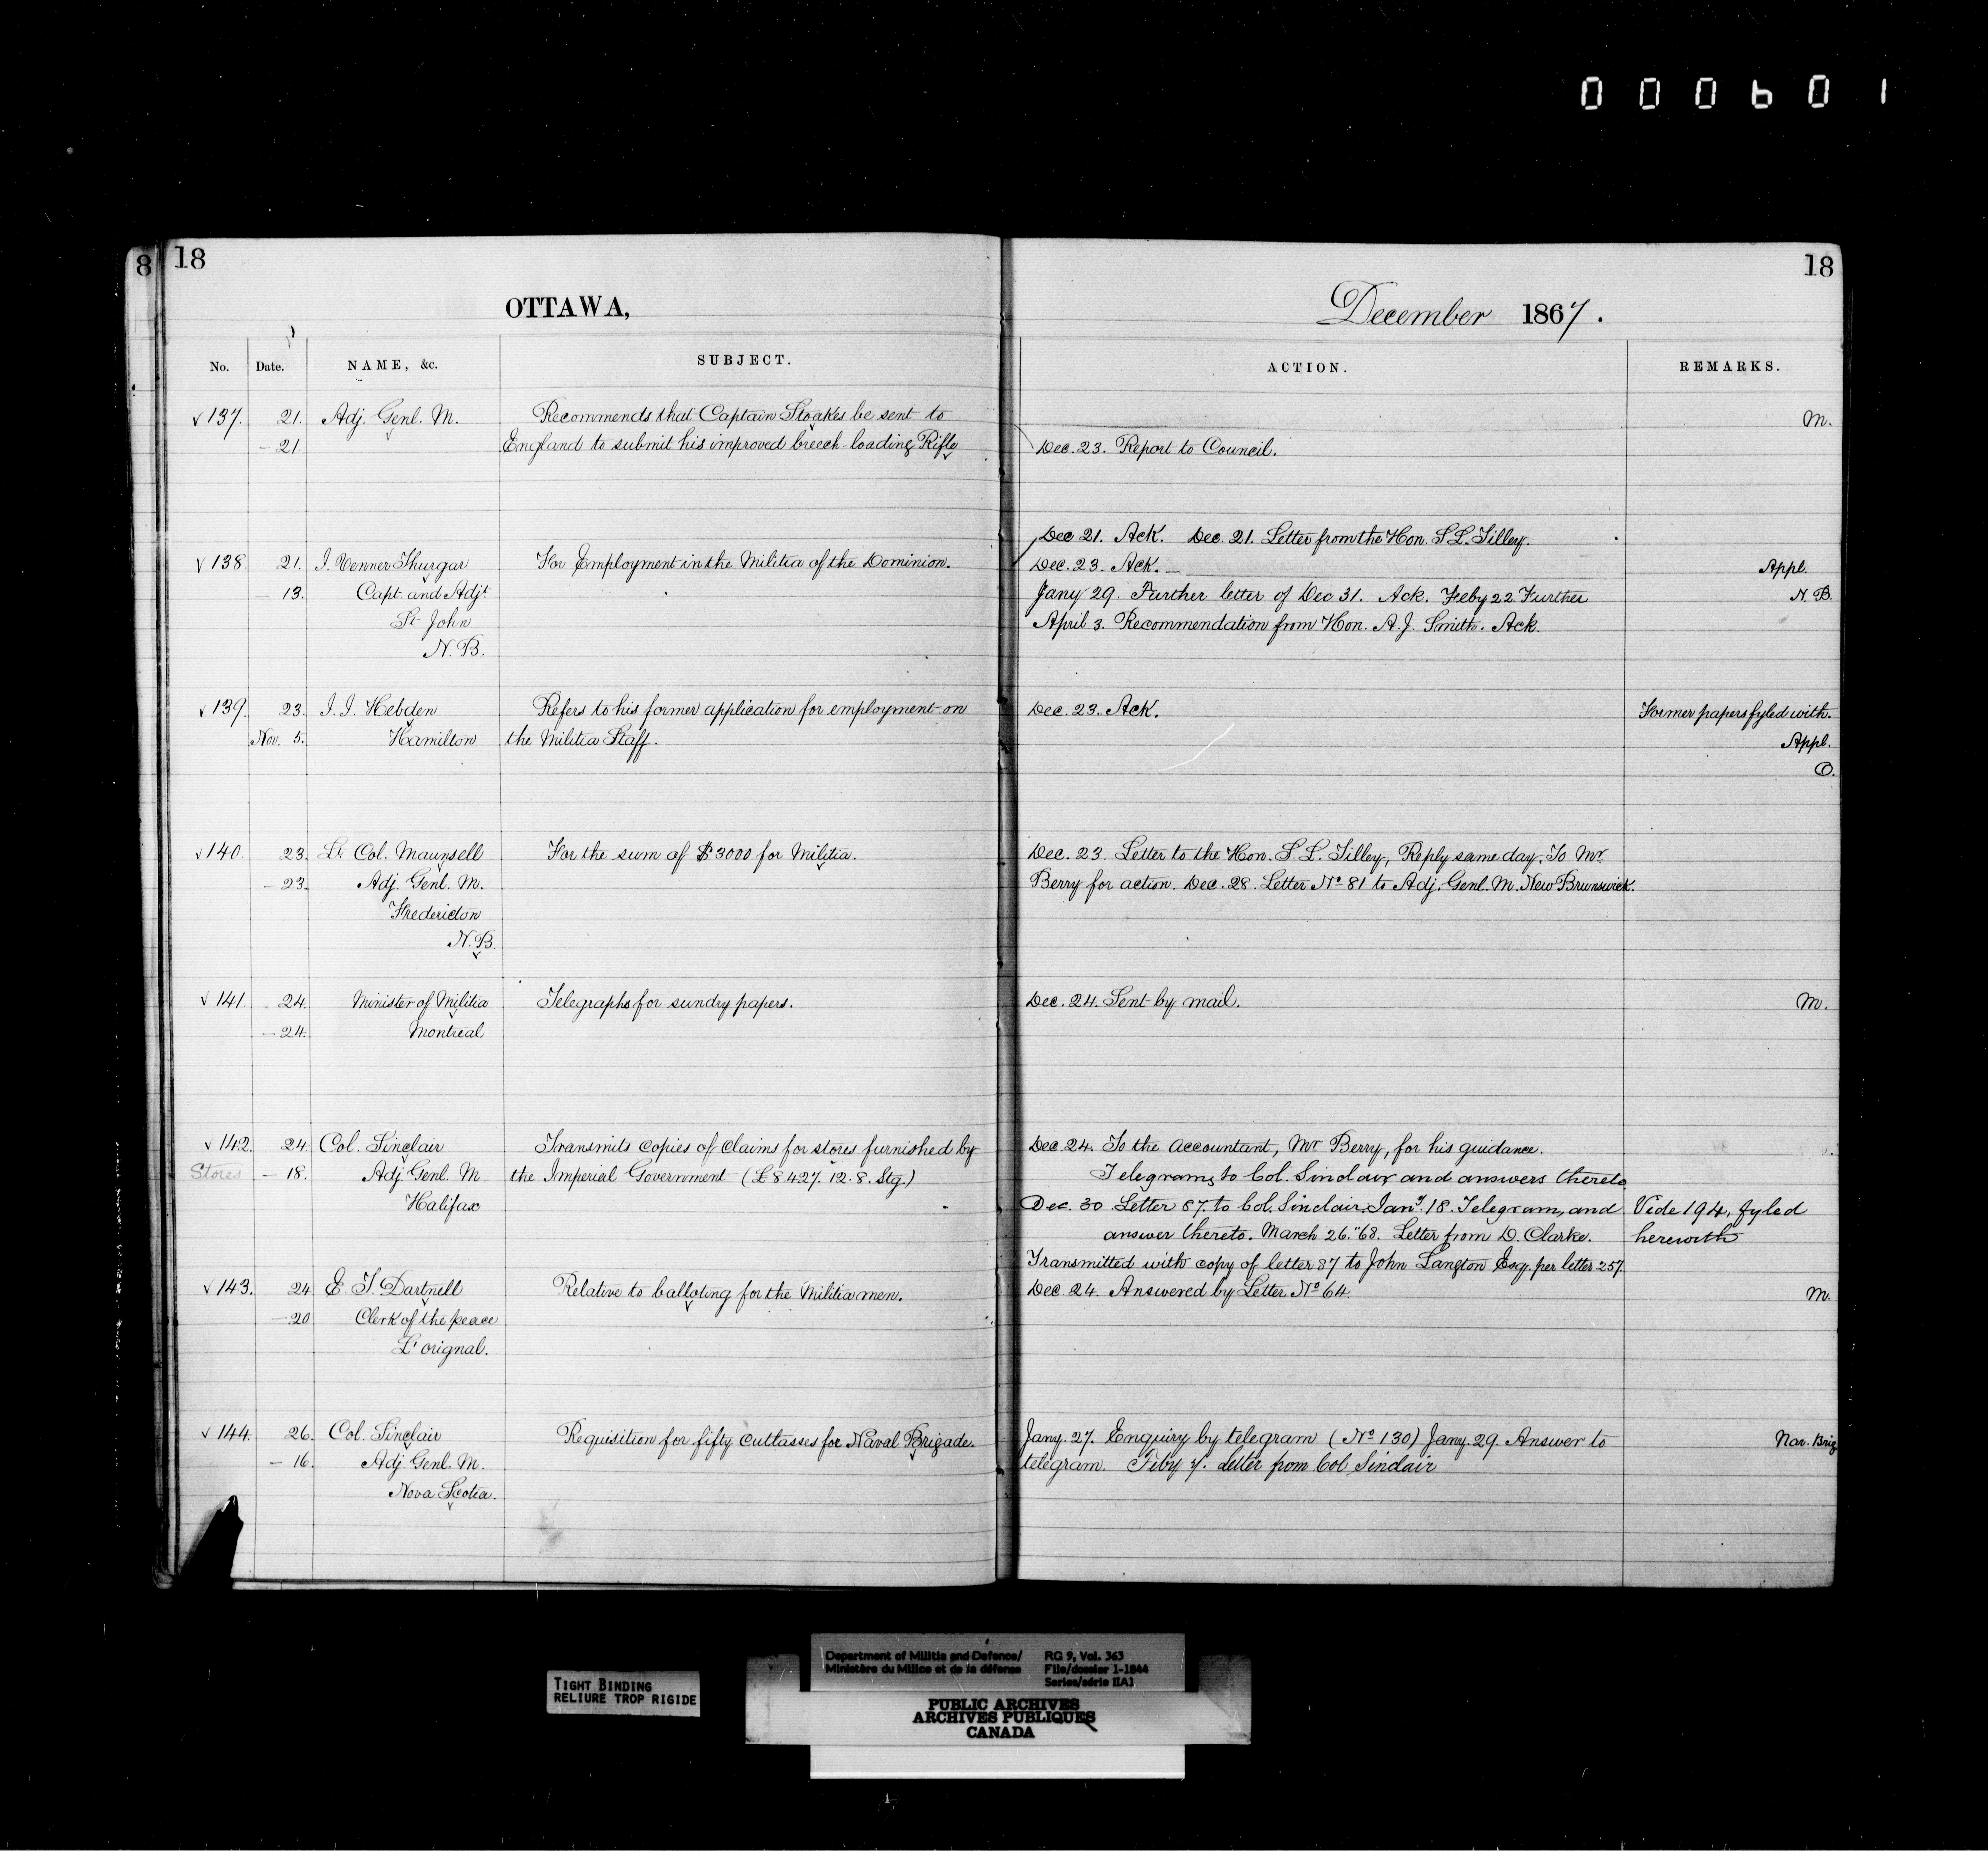 000601
8 18
18
OTTAWA,
December 1867.
No. Date. NAME, &c. SUBJECT. ACTION. REMARKS.
137. 21. Adj. Genl. M. Recommends that Captain Stoakes be sent to M.
- 21 England to submit his improved breech-loading Rifle Dec. 23. Report to Council.
Dec 21. Ack. Dec. 21. Letter from the Hon. S. L. Tilley.
138. 21. J. Venner Thurgar For Employment in the Militia of the Dominion. Dec. 23. Ack. — Appl.
13. Capt. and Adjt. Jany 29. Further letter of Dec 31. Ack. Feby 22 Further N. B.
St. John April 3. Recommendation from Hon. A. J. Smith. Ack.
N. B.
139. 23. J. J. Hebden Refers to his former application for employment on Dec. 23. Ack. Former papers fyled with.
Nov. 5. Hamilton the Militia Staff. Appl.
O.
140. 23. Lt. Col. Maunsell For the sum of $3000 for Militia. Dec. 23. Letter to the Hon. S. L. Tilley, Reply same day. To Mr.
- 23. Adj. Genl. M. Berry for action. Dec. 28. Letter No. 81 to Adj. Genl. M. New Brunswick.
Fredericton
N. B.
141. 24. Minister of Militia Telegraphs for sundry papers. Dec. 24. Sent by mail. M.
- 24. Montreal
142. 24 Col. Sinclair Transmits copies of Claims for stores furnished by Dec. 24. To the Accountant, Mr. Berry, for his guidance.
Stores - 18. Adj. Genl. M the Imperial Government (£8.427. 12. 8. Stg.) Telegrams to Col. Sinclair and answers thereto
Halifax Dec. 30 Letter 87. to Col. Sinclair. Jany. 18. Telegram, and Vide 194, fyled
answer thereto. March 26."68. Letter from D. Clarke. herewith
Transmitted with copy of letter 87 to John Langton Esq. per letter 257.
143. 24 E. T. Dartnell Relative to balloting for the Militia men. Dec. 24. Answered by Letter No. 64. M.
- 20 Clerk of the peace
L'orignal.
144. 26. Col. Sinclair Requisition for fifty Cutlasses for Naval Brigade. Jany. 27. Enquiry by telegram (No. 130) Jany. 29. Answer to Nav. Brig
- 16. Adj. Genl. M. telegram. Feby 7. Letter from Col Sinclair
Nova Scotia.
TIGHT BINDING
RELIURE TROP RIGIDE
Department of Militia and Defence/ RG 9, Vol. 363
Ministère du Milice et de la défense File/dossier 1-1844
Series/série IIA1
PUBLIC ARCHIVES
ARCHIVES PUBLIQUES
CANADA